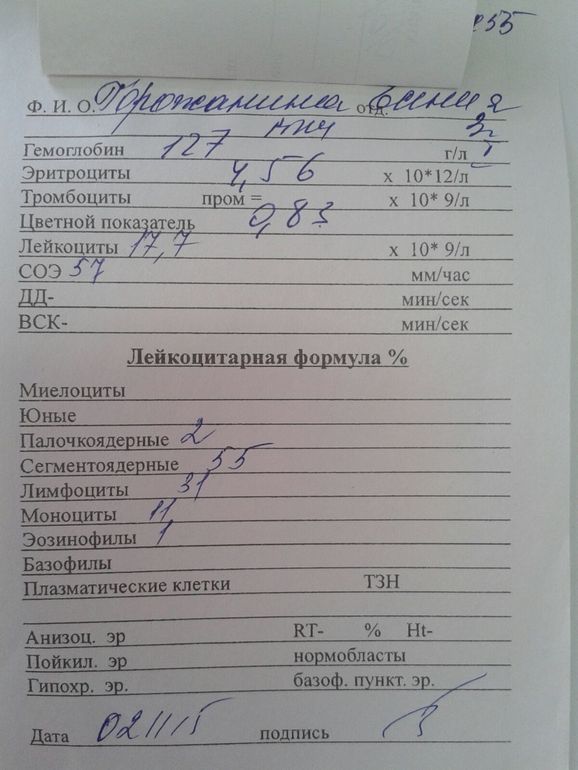 Ф. И. О. Горожанина отд.
Гемоглобин 127 г/л
Эритроциты 4,56 х 10*12/л
Тромбоциты пром = х 10* 9/л
Цветной показатель 0,83
Лейкоциты 17,7 х 10* 9/л
СОЭ 57 мм/час
ДД- мин/сек
ВСК- мин/сек
Лейкоцитарная формула %
Миелоциты
Юные
Палочкоядерные 2
Сегментоядерные 55
Лимфоциты 31
Моноциты 11
Эозинофилы 1
Базофилы
Плазматические клетки ТЗН
Анизоц. эр RT- % Ht-
Пойкил. эр нормобласты
Гипохр. эр. базоф. пункт. эр.
Дата 021115 подпись